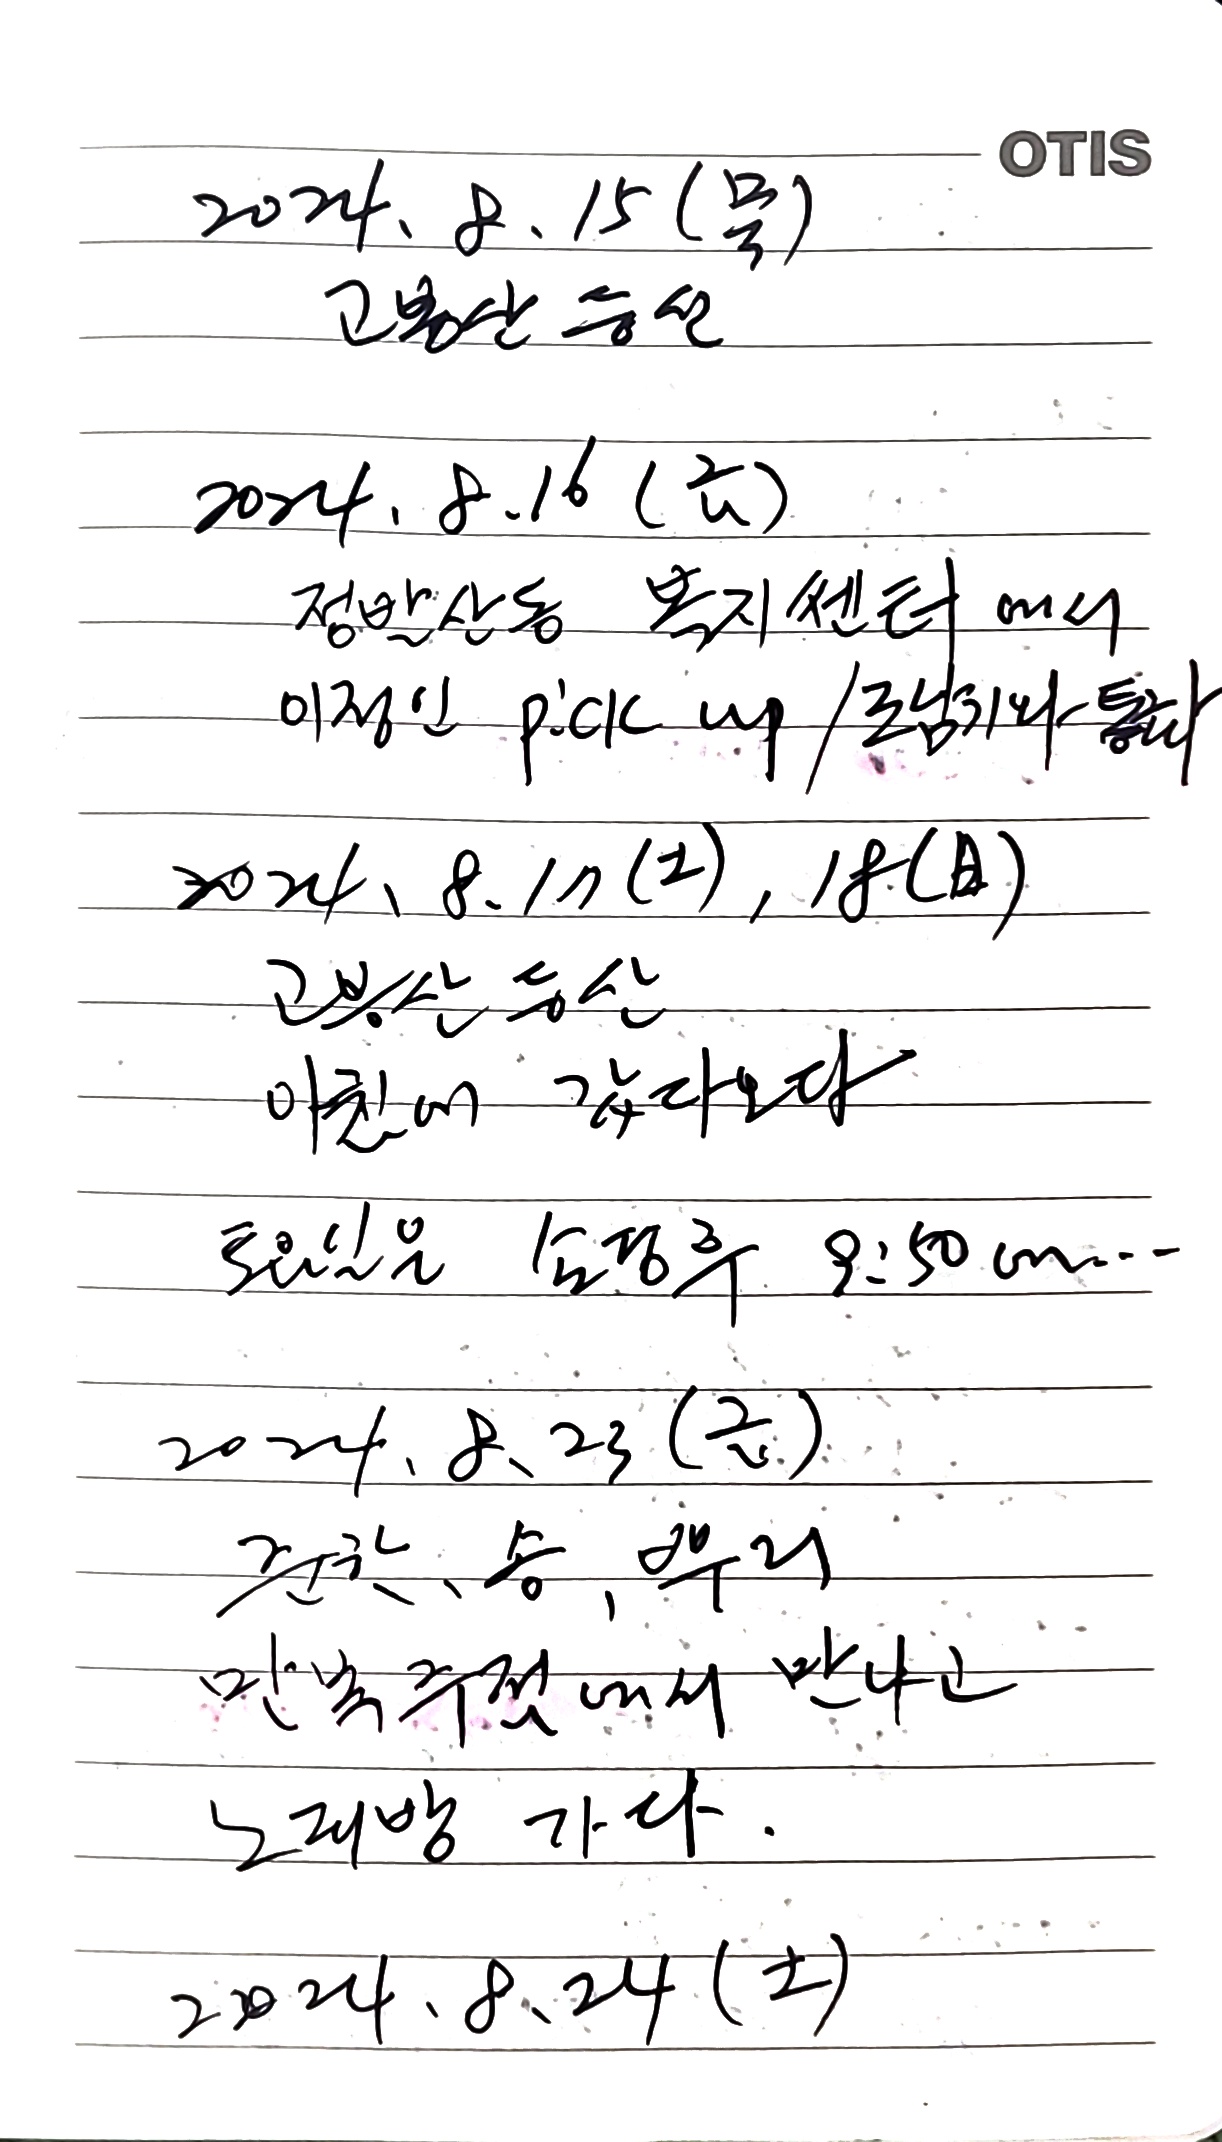 OTIS
2024. 8. 15 (목)
고봉산 등산
2024. 8. 16 (금)
정발산동 복지쎈터에서
이정인 pick up / 조남기와 통화
2024. 8. 17 (土), 18 (日)
고봉산 등산
아침에 갔다오다
토요일은 9:50에...
2024. 8. 23 (금)
승, 뿌리
만복주점에서 만나고
노래방 가다.
2024. 8. 24 (土)